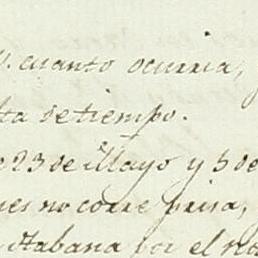 V. cuanto ocurria,
lta de tiempo.
e 23 de Mayo y 3 de
es no corre prisa,
Habana por el